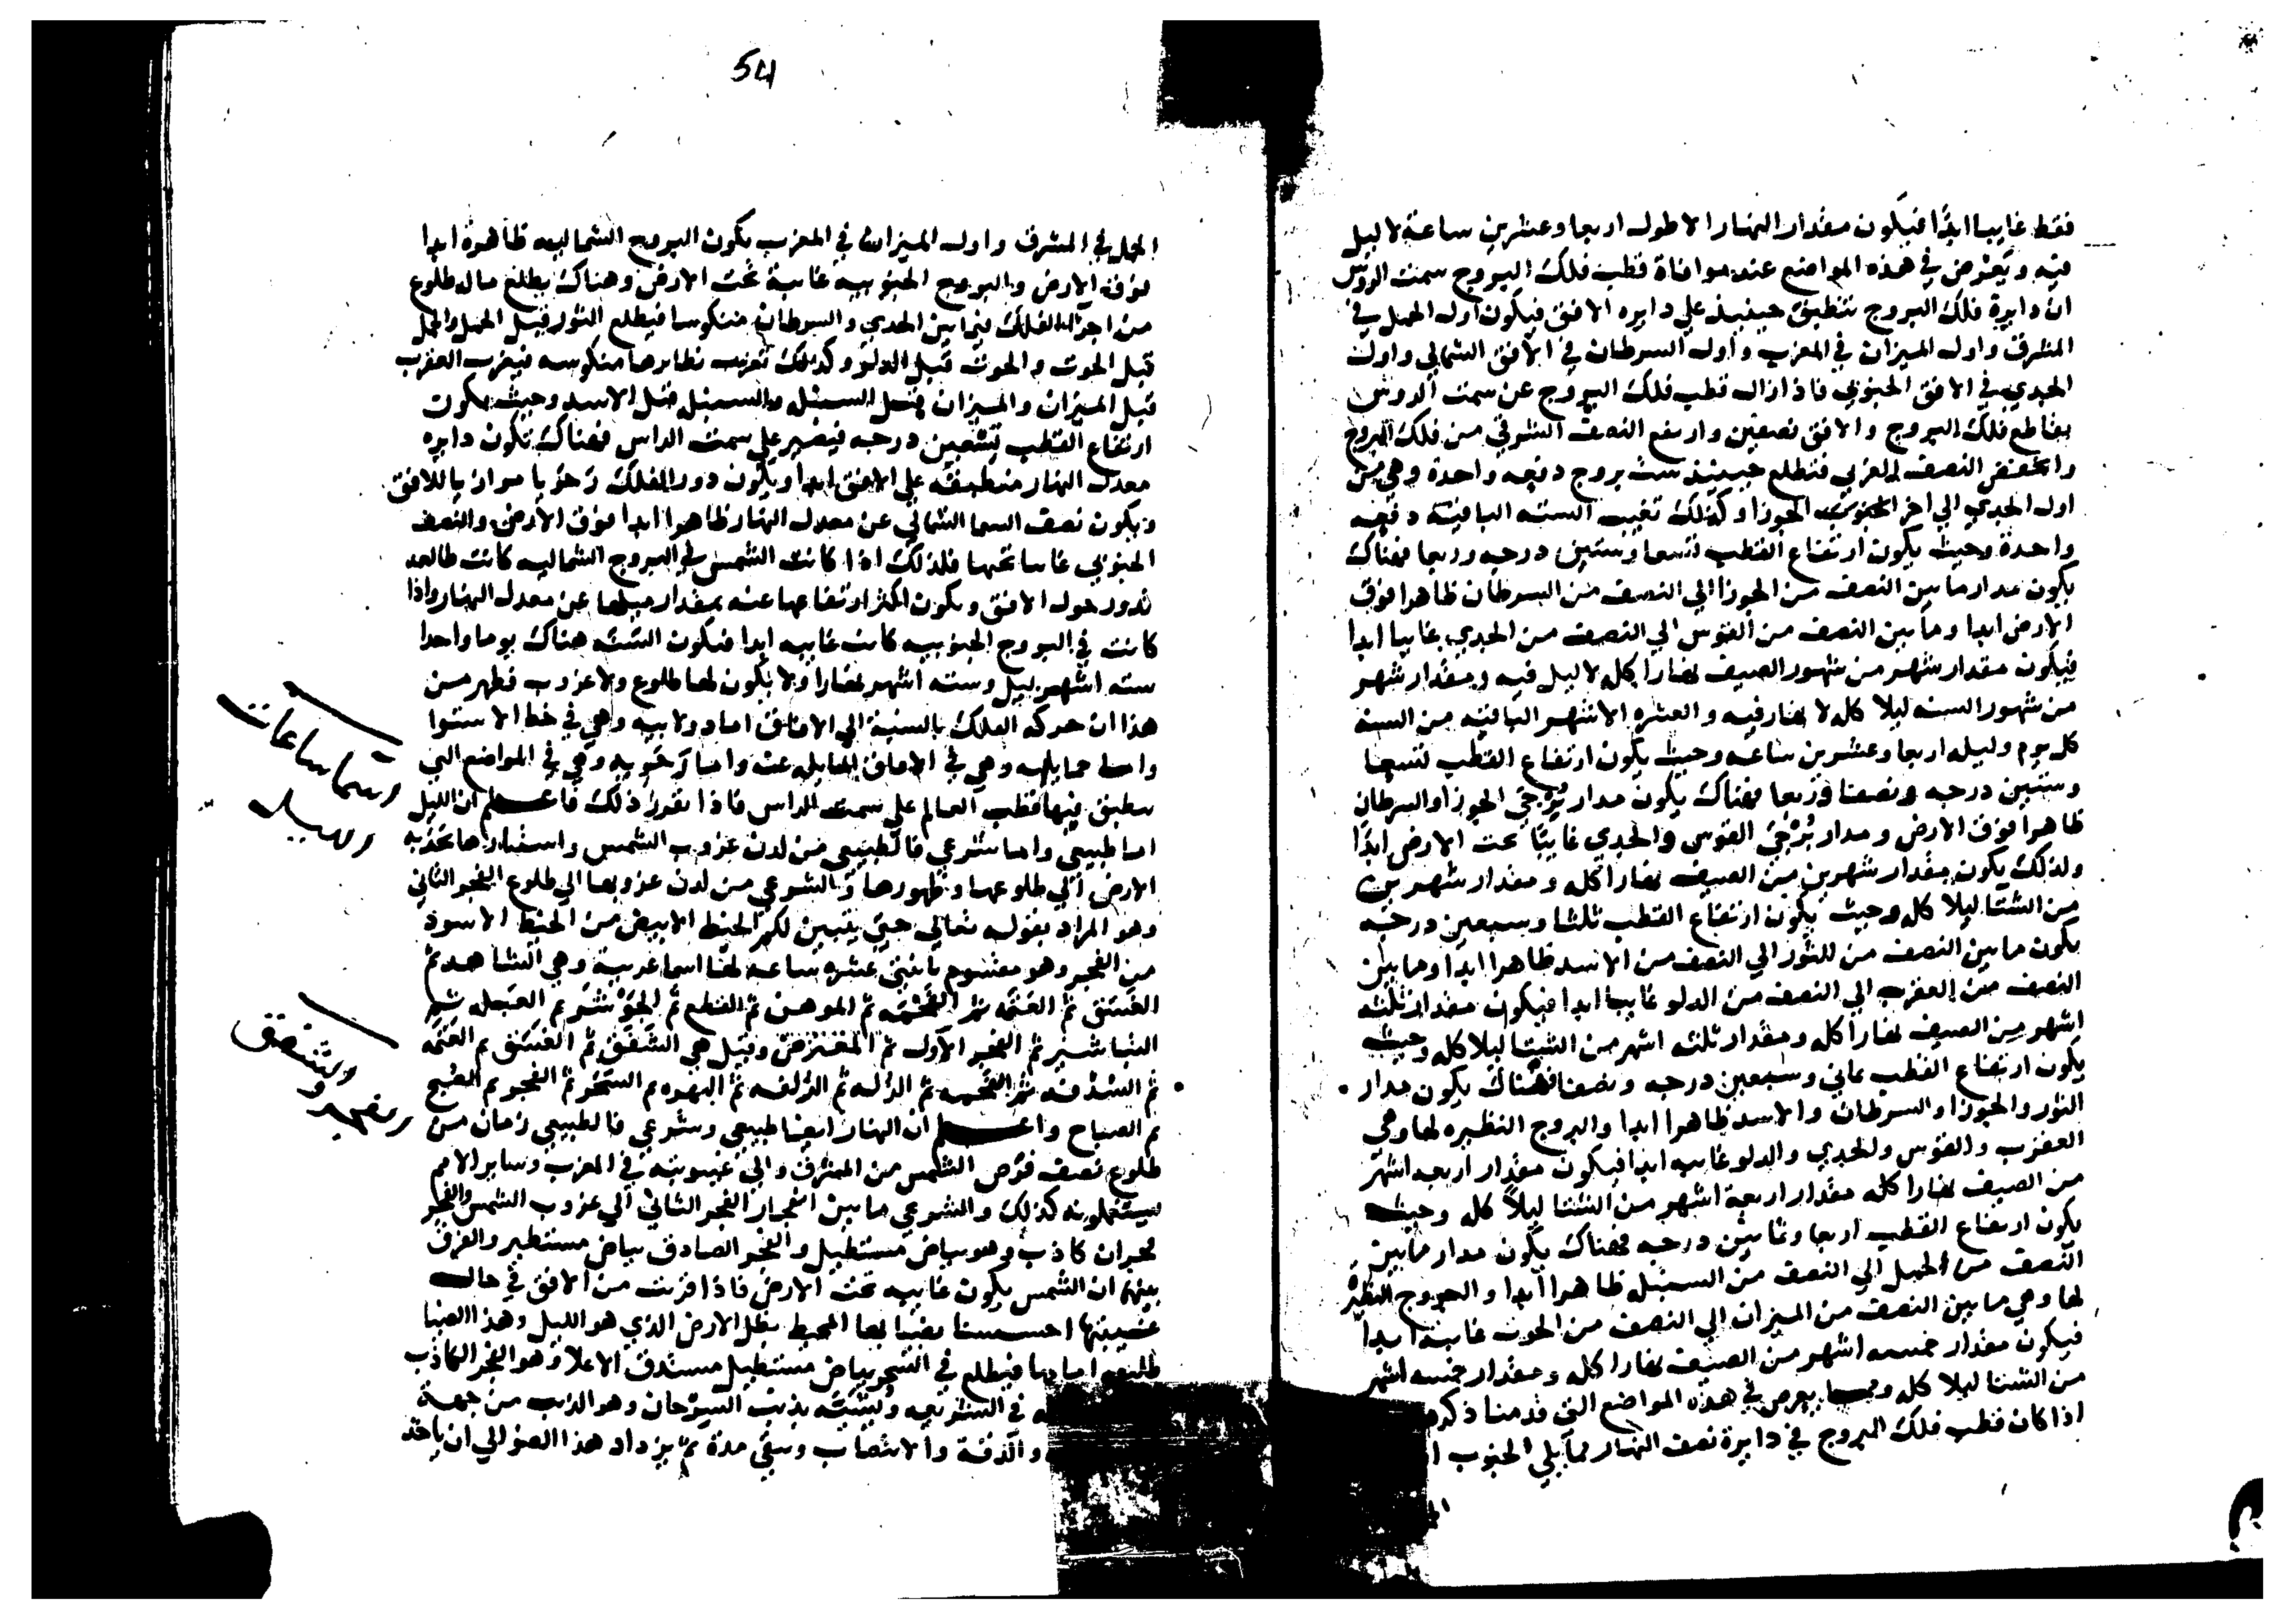 فقط غايبا ابدًا فيكون مقدار النهار الاطول اربعا وعشرين ساعة لا ليل
فيه ويعرض في هذه المواضع عند موافاة قطب فلك البروج سمت الروس
ان دايرة فلك البروج تنطبق حينيذ علي دايره الافق فيكون اول الحمل في
المشرق واول الميزان في المغرب واول السرطان في الافق الشمالي واول
الجدي في الافق الجنوبي فاذا زال قطب فلك البروج عن سمت الروس
تقاطع فلك البروج والافق نصفين وارتفع النصف الشرقي من فلك البروج
وانخفض النصف الغربي فتطلع حينيذ ست بروج دفعه واحدة وهي من
اول الجدي الي اخر الجوزا وكذلك تغيب السته الباقية دفعه
واحدة وحيث يكون ارتفاع القطب تسعا وستين درجه وربعا فهناك
يكون مدار ما بين النصف من الجوزا الي النصف من السرطان ظاهرا فوق
الارض ابدا وما بين النصف من القوس الي النصف من الجدي غايبا ابدا
فيكون مقدار شهر من شهور الصيف نهارا كله لا ليل فيه ومقدار شهر
من شهور السنه ليلا كله لا نهار فيه والعشره الاشهر الباقيه من السنه
كل يوم وليله اربعا وعشرين ساعه وحيث يكون ارتفاع القطب تسعا
وستين درجه ونصفا وربعا فهناك يكون مدار برجي الجوزا والسرطان
ظاهرا فوق الارض ومدار بُرْجَيْ القوس والجدي غايبًا تحت الارض ابدًا
ولذلك يكون مقدار شهرين من الصيف نهارا كله ومقدار شهرين
من الشتا ليلا كله وحيث يكون ارتفاع القطب ثلثا وسبعين درجه
يكون ما بين النصف من الثور الي النصف من الاسد ظاهرا ابدا وما بين
النصف من العقرب الي النصف من الدلو غايبا ابدا فيكون مقدار ثلثه
اشهر من الصيف نهارا كله ومقدار ثلثه اشهر من الشتا ليلا كله وحيث
يكون ارتفاع القطب ثماني وسبعين درجه ونصفا فهناك يكون مدار
الثور والجوزا والسرطان والاسد ظاهرا ابدا والبروج النظيره لها وهي
العقرب والقوس والجدي والدلو غايبه ابدا فيكون مقدار اربعه اشهر
من الصيف نهارا كله مقدار اربعة اشهر من الشتا ليلاً كله وحيث
يكون ارتفاع القطب اربعا وثمانين درجه فهناك يكون مدار ما بين
النصف من الحمل الي النصف من السنبله ظاهرا ابدا والبروج النظيرة
لها وهي ما بين النصف من الميزان الي النصف من الحوت غايبة ابدا
فيكون مقدار خمسه اشهر من الصيف نهارا كله ومقدار خمسه اشهر
من الشتا ليلا كله ومما يعرض في هذه المواضع التي قدمنا ذكرها
اذا كان قطب فلك البروج في دايرة نصف النهار مما يلي الجنوب
54
الحمل في المشرق واول الميزان في المغرب يكون البروج الشماليه ظاهرة ابدا
فوق الارض والبروج الجنوبيه غايبة تحت الارض وهناك يطلع ماله طلوع
من اجزاء الفلك فيما بين الجدي والسرطان منكوسا فيطلع الثور قبل الحمل والحمل
قبل الحوت والحوت قبل الدلو وكذلك تغرب نظايرها منكوسه فيغرب العقرب
قبل الميزان والميزان قبل السنبله والسنبله قبل الاسد وحيث يكون
ارتفاع القطب تسعين درجه فيصير علي سمت الراس فهناك تكون دايره
معدل النهار منطبقه علي الافق ابدا ويكون دور الفلك رَحَوُيا موازيا للافق
ويكون نصف السما الشمالي عن معدل النهار ظاهرا ابدا فوق الارض والنصف
الجنوبي غايبا تحتها فلذلك اذا كانت الشمس في البروج الشماليه كانت طالعه
تدور حول الافق ويكون اكثر ارتفاعها عنه بمقدار ميلها عن معدل النهار واذا
كانت في البروج الجنوبيه كانت غايبه ابدا فيكون السنه هناك يوما واحدا
سته اشهر ليل وسته اشهر نهارا ولا يكون لها طلوع ولا غروب فظهر من
هذا ان حركه الفلك بالنسبة الي الافاق اما دولابيه وهي في خط الاستوا
واما حمايليه وهي في الافاق المايله عنه واما رَحَويه وهي في المواضع التي
ينطبق فيها قطب العالم علي سمت الراس فاذا تقرر ذلك فاعلم ان الليل
اما طبيعي واما شرعي فالطبيعي من لدن غروب الشمس واستتارها بحدبه
الارض الي طلوعها وظهورها والشرعي من لدن غروبها الي طلوع الفجر الثاني
وهو المراد بقوله تعالي حتي يتبين لكم الخيط الابيض من الخيط الاسود
من الفجر وهو مقسوم باثني عشره ساعه لها اسما عربية وهي الشاهد ثم
الغسق ثم العتمه ثم الفحمه ثم الموهن ثم القطع ثم الجَوْشَن ثم العتجله ثم
التباشير ثم الفجر الاول ثم المعترض وقيل هي الشَفَق ثم الغسق ثم العتمه
ثم السُدْفه ثم الفحمه ثم الزله ثم الزلفه ثم البهره ثم السَحَر ثم الفجر ثم الصبح
ثم الصباح واعلم ان النهار ايضا طبيعي وشرعي فالطبيعي زمان من
طلوع نصف قرص الشمس من المشرق والي غيبوبته في المغرب وساير الامم
يستعملونه كذلك والشرعي ما بين انفجار الفجر الثاني الي غروب الشمس والفجر
فجران كاذب وهو بياض مستطيل والفجر الصادق بياض مستطير والفرق
بينهما ان الشمس يكون غايبه تحت الارض فاذا قربت من الافق في حال
غيبتها احسسنا بضيايها المحيط بظل الارض الذي هو الليل وهذا الضيا
طليعه امامها فيطلع في السحر بياض مستطيل مستدق الاعلا وهو الفجر الكاذب
في الشريعه ويُشَبَّه بذنب السِرْحان وهو الذيب من جهة
والدقة والانتصاب ويبقي مدة ثم يزداد هذا الضو الي ان ياخذ